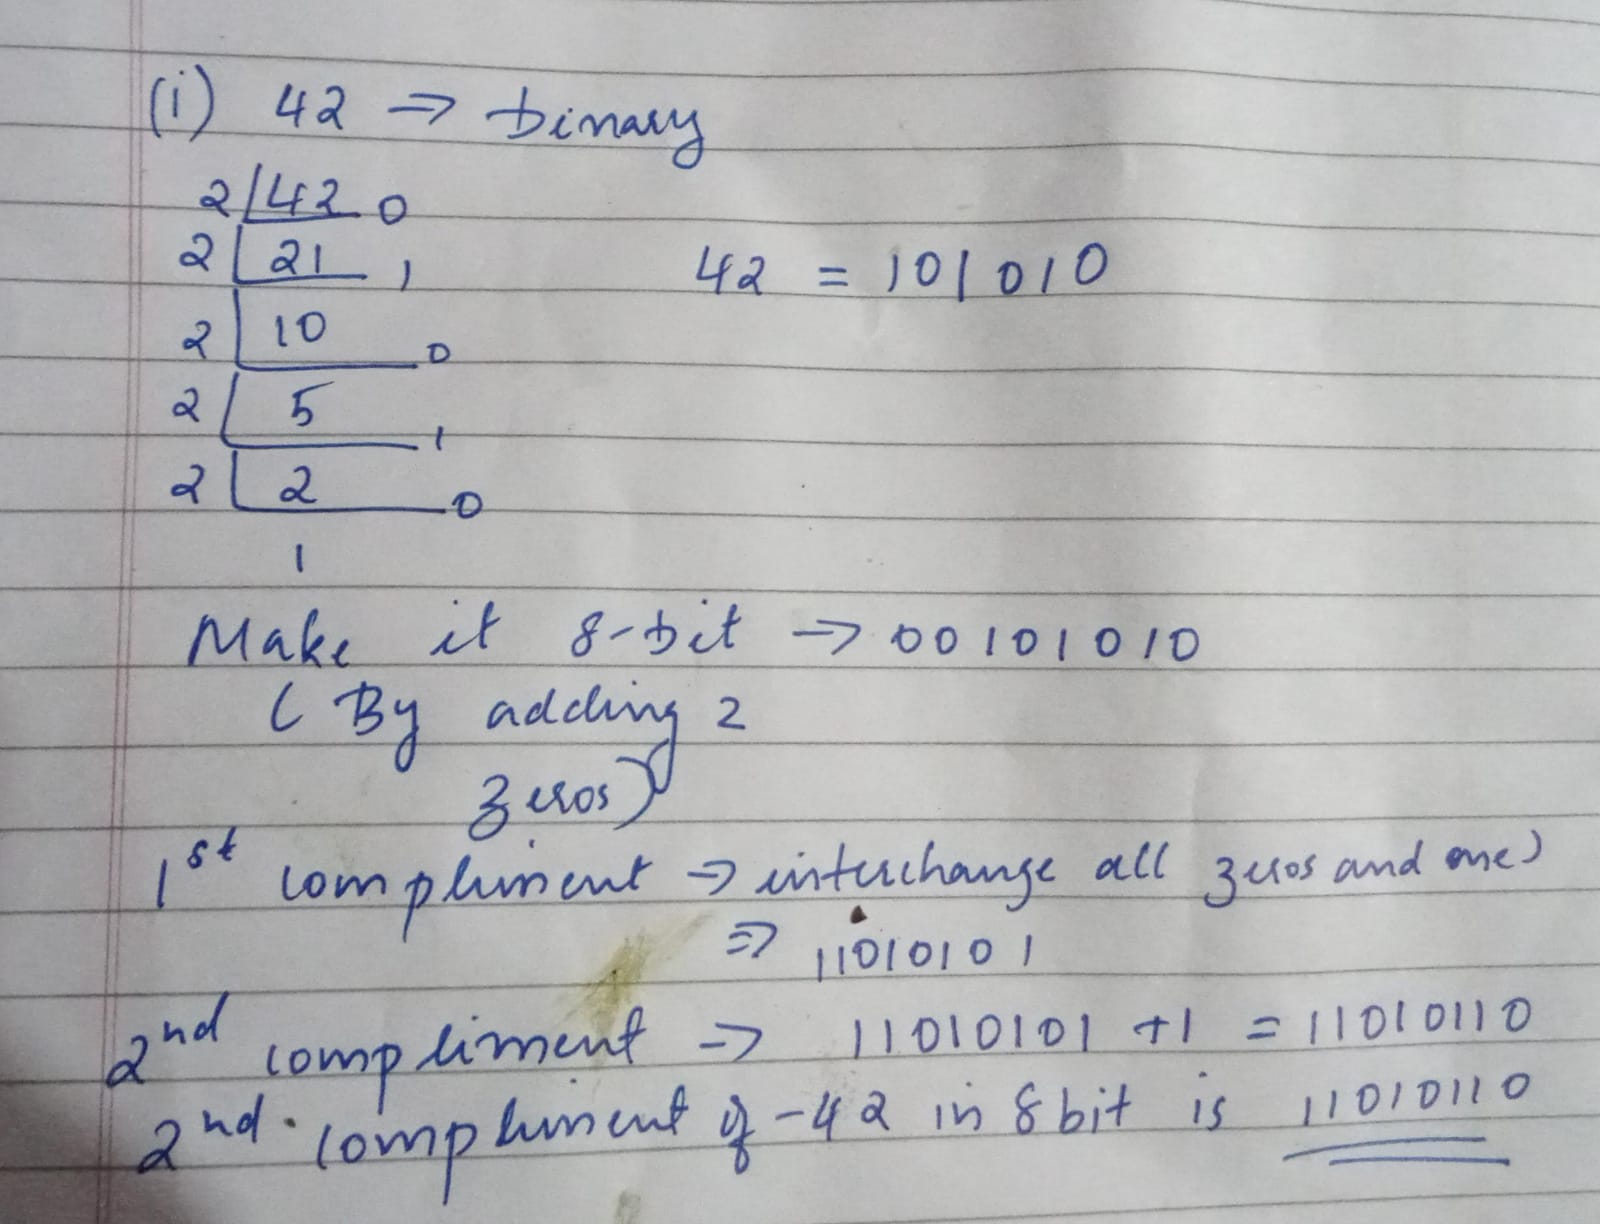 (i) 42 ⇒ binary
2 42 0
2 21 1
42 = 101010
2 10 0
2 5 1
2 2 0
1
Make it 8-bit → 00101010
( By adding 2
zeros)
1st compliment → interchange all zeros and one)
⇒ 11010101
2nd compliment → 11010101 +1 = 11010110
2nd. compliment of -42 in 8 bit is 11010110